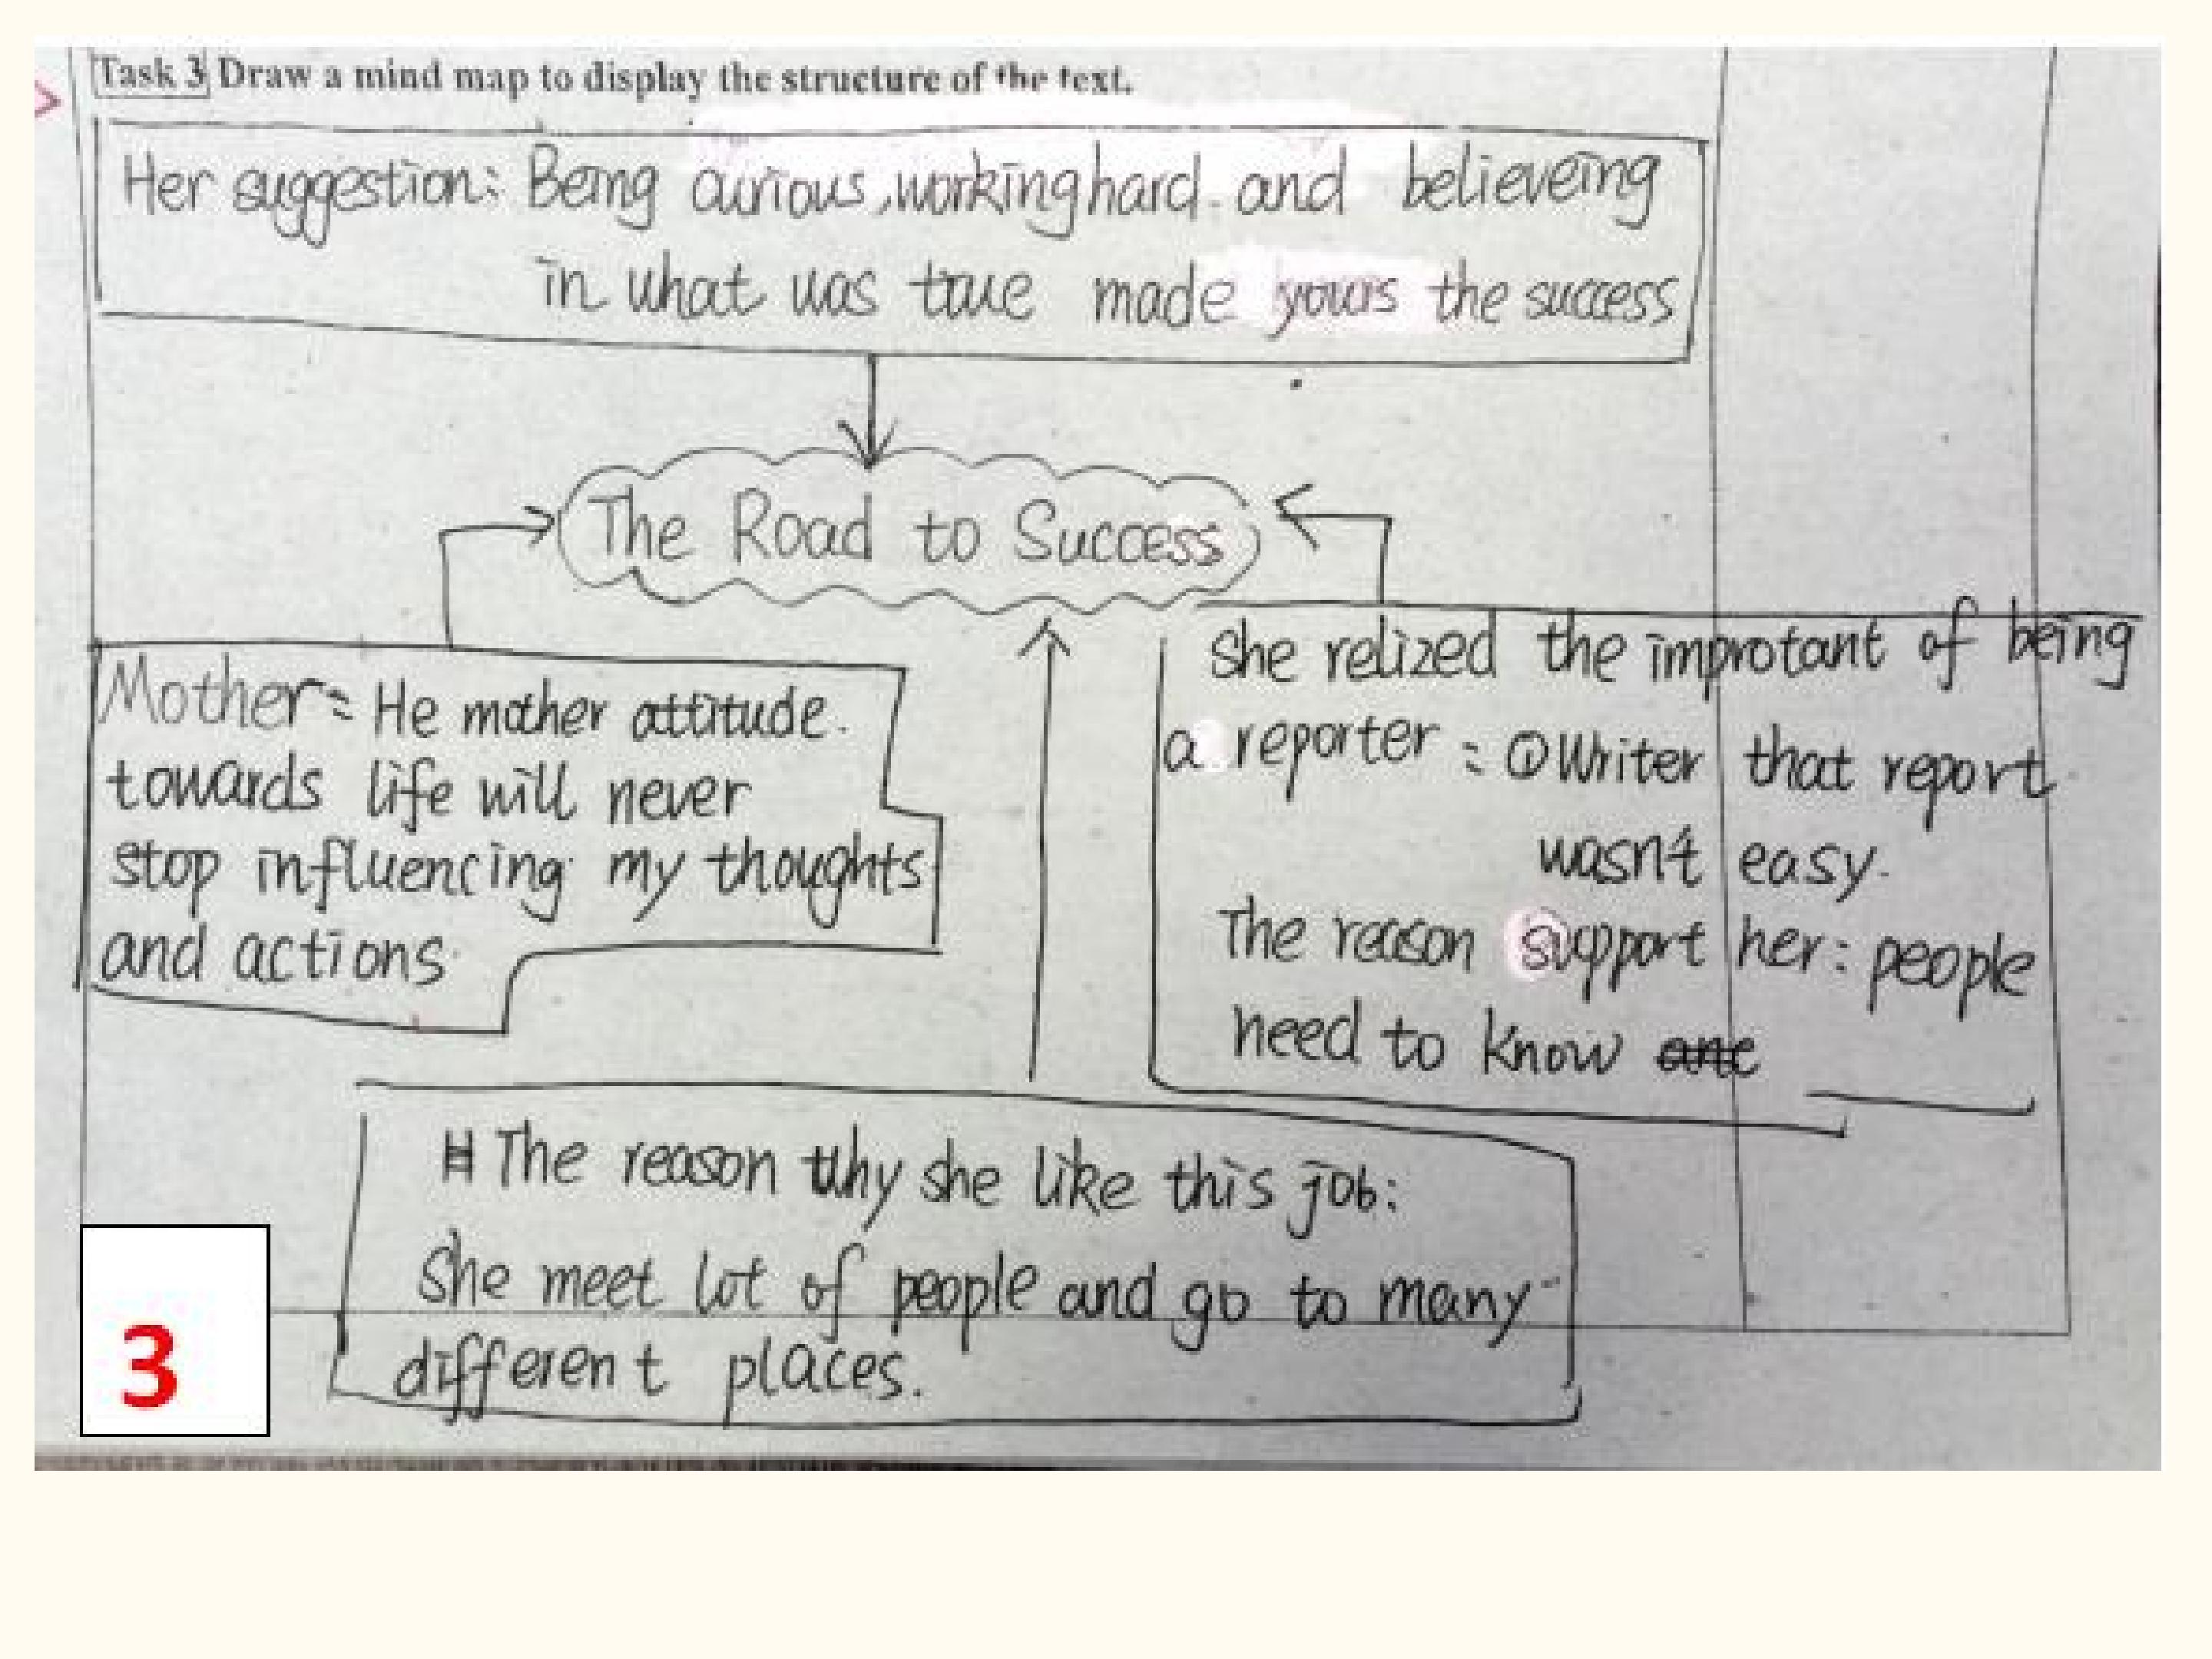 Task 3 Draw a mind map to display the structure of the text.
Her suggestion: Being curious, working hard and believeing
in what was true made yours the success
The Road to Success
Mother: He mother attitude.
towards life will never
stop influencing my thoughts
and actions.
She relized the improtant of being
a reporter: ①Writer that report
wasn't easy.
The reason support her: people
need to know
The reason why she like this job:
She meet lot of people and go to many
different places.
3